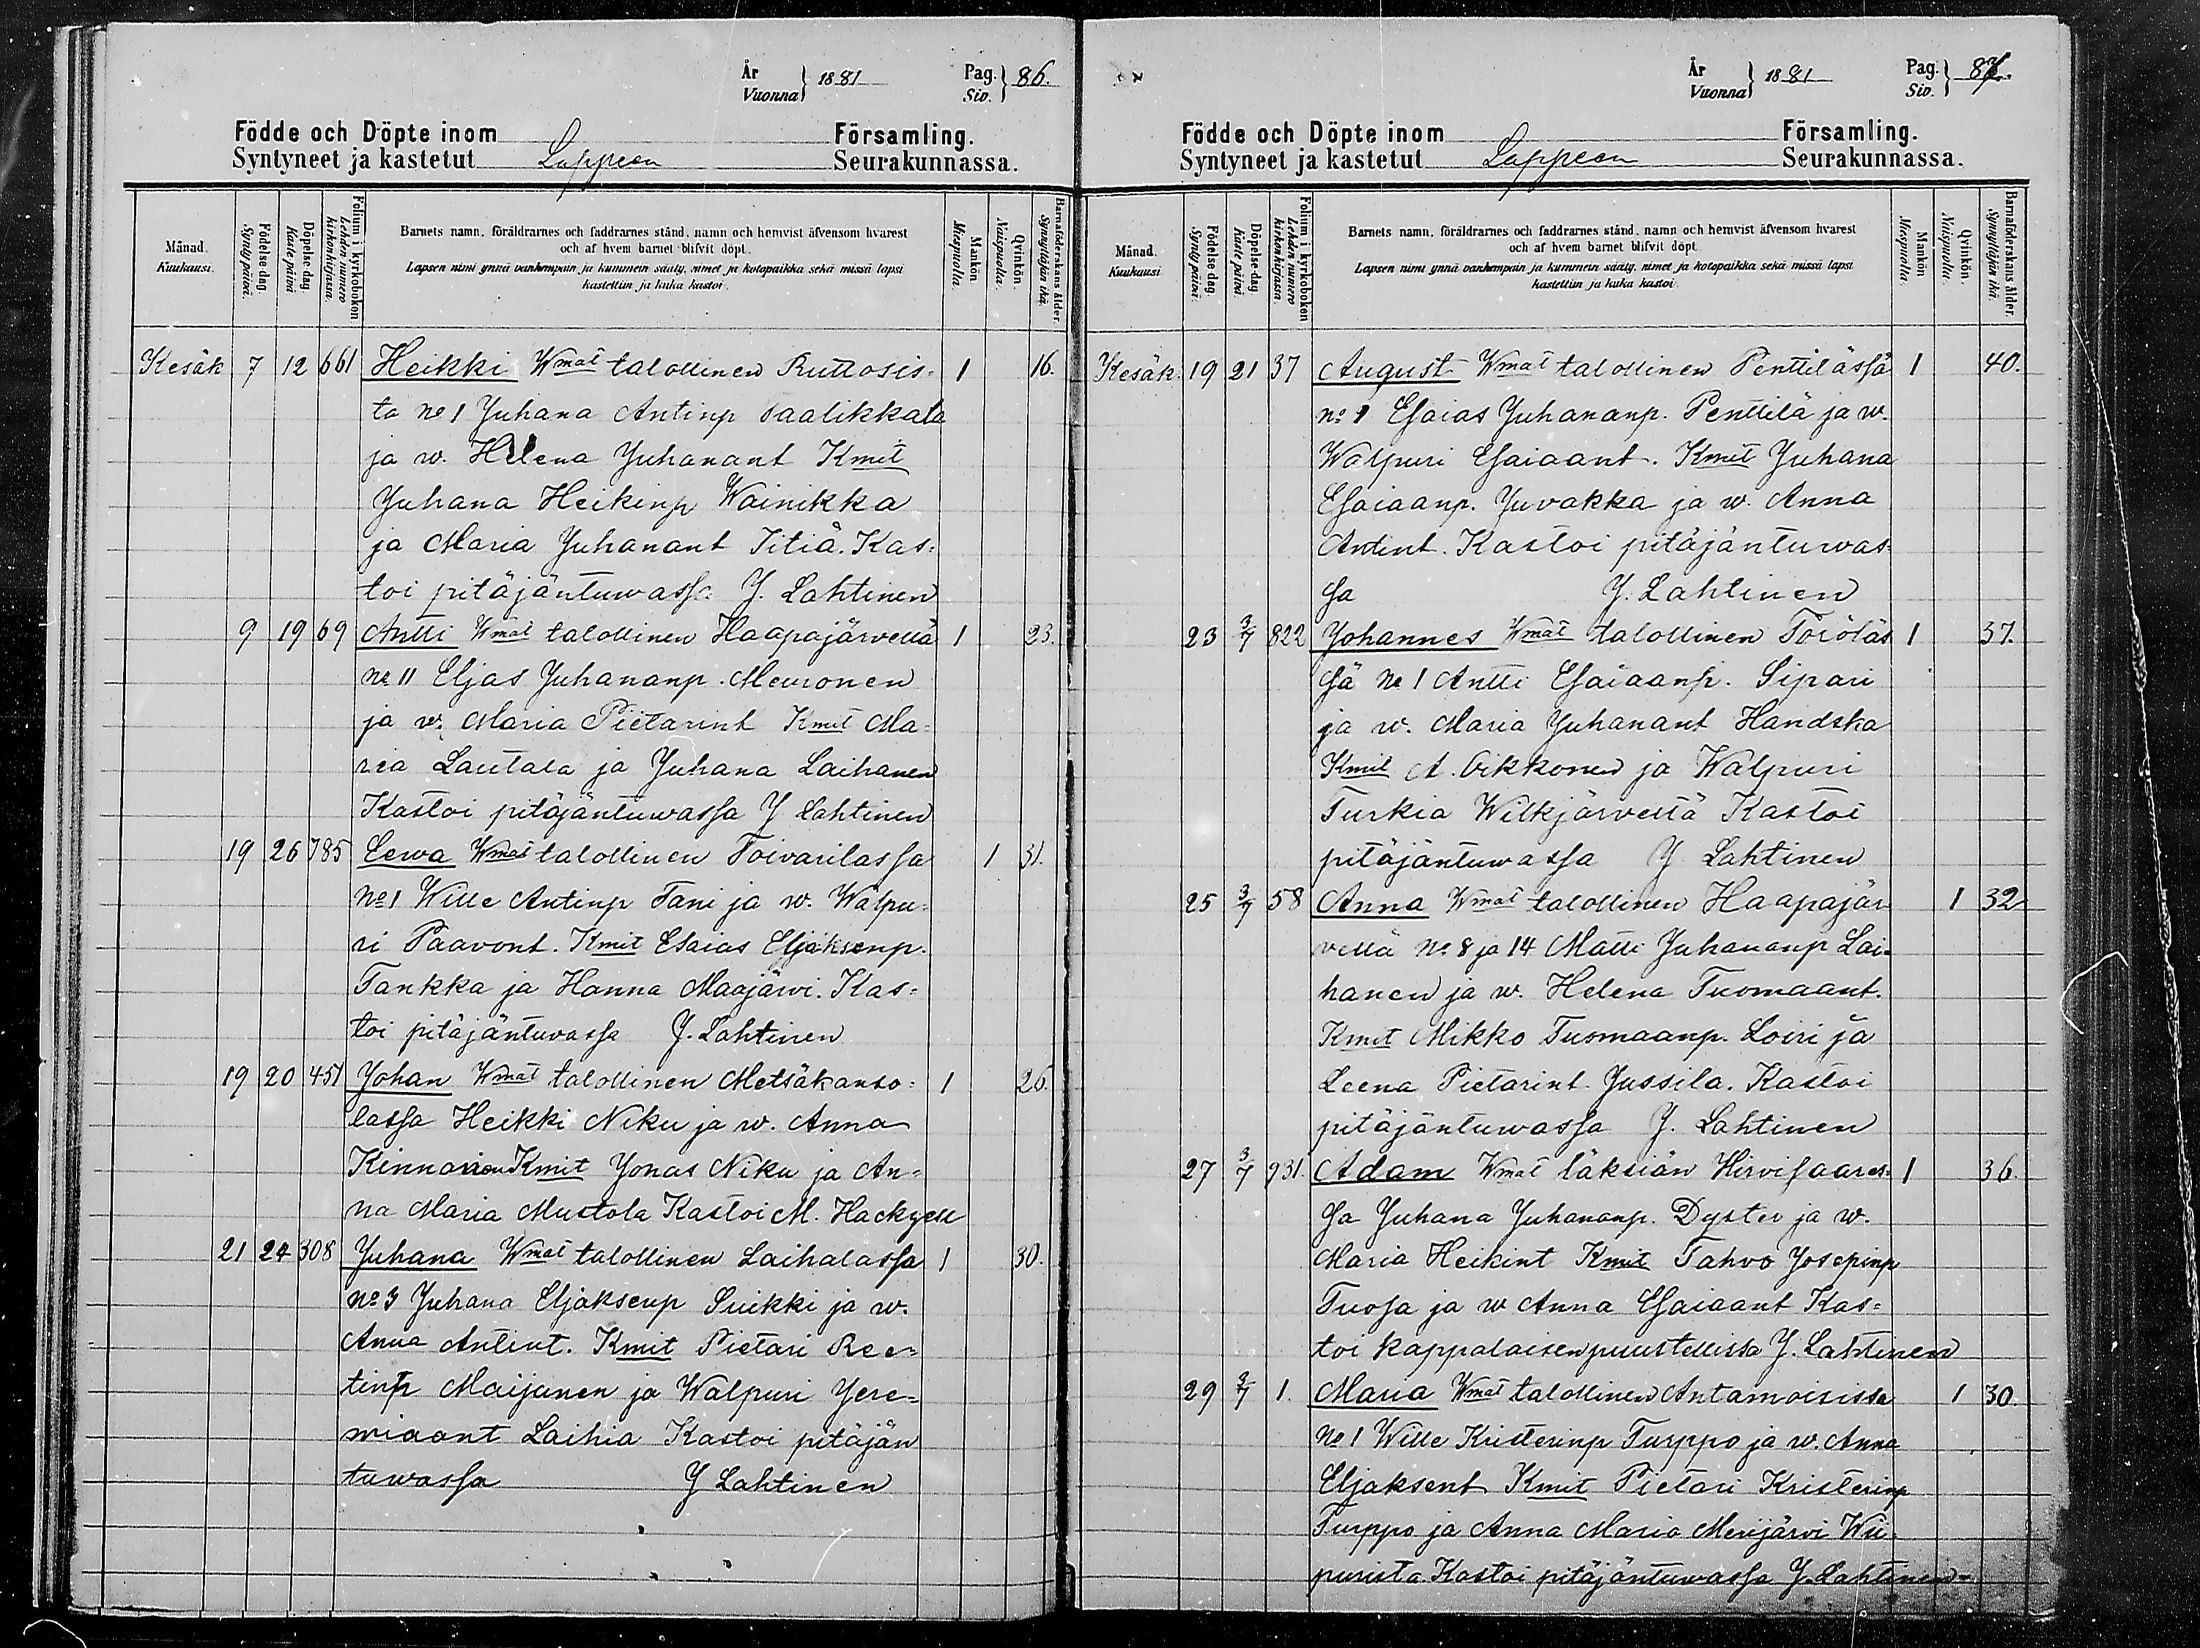 År
Vuonna } 1881
Pag.
Siv. } 86.
Födde och Döpte inom Församling.
Syntyneet ja kastetut Lappeen Seurakunnassa.
Månad. Kuukausi.
Födelse dag. Synty päivä.
Döpelse dag. Kaste päivä
Folium i kyrkoboken Lehden numero kirkonkirjassa.
Barnets namn, föräldrarnes och faddrarnes stånd, namn och hemvist äfvensom hvarest
och af hvem barnet blifvit döpt.
Lapsen nimi ynnä vanhempain ja kummein sääty, nimet ja kotopaikka sekä missä lapsi
kastettiin ja kuka kastoi.
Mankön Miespuolia.
Qvinkön. Naispuolia.
Barnaföderskans ålder. Synnyttäjän ikä.
Kesäk 7 12 661 Heikki Wmat talollinen Ruttosis- 1 16.
ta No 1 Juhana Antinp Taalikkala
ja w. Helena Juhanant Kmit
Juhana Heikinp Wainikka
ja Maria Juhanant Titiä. Kas-
toi pitäjäntuwassa J. Lahtinen
9 19 69 Antti Wmat talollinen Haapajärvellä 1 23.
No 11 Eljas Juhananp. Meuronen
ja w. Maria Pietarint Kmit Ma-
ria Lautala ja Juhana Laihanen
Kastoi pitäjäntuwassa J Lahtinen
19 26 785 Eewa Wmat talollinen Toivarilassa 1 31.
No 1 Wille Antinp Tani ja w. Walpu-
ri Paavont. Kmit Esaias Eljaksenp.
Tankka ja Hanna Maajärvi. Kas-
toi pitäjäntuvassa J. Lahtinen
19 20 451 Johan Wmat talollinen Metsäkanso- 1 26.
lassa Heikki Niku ja w. Anna
Kinnarinen Kmit Jonas Niku ja An-
na Maria Mustola Kastoi M. Hackzell
21 24 308 Juhana Wmat talollinen Laihalassa 1 30.
No 3 Juhana Eljaksenp Suikki ja w.
Anna Antint. Kmit Pietari Ree-
tinp Maijanen ja Walpuri Jere-
miaant Laihia Kastoi pitäjän
tuwassa J Lahtinen
År
Vuonna } 1881
Pag.
Siv. } 87.
Födde och Döpte inom Församling.
Syntyneet ja kastetut Lappeen Seurakunnassa.
Månad. Kuukausi
Födelse dag. Synty päivä.
Döpelse dag. Kaste päivä.
Folium i kyrkoboken Lehden numero kirkonkirjassa.
Barnets namn, föräldrarnes och faddrarnes stånd, namn och hemvist äfvensom hvarest
och af hvem barnet blifvit döpt.
Lapsen nimi ynnä vanhempain ja kummein sääty, nimet ja kotopaikka sekä missä lapsi
kastettiin ja kuka kastoi
Mankön Miespuolia.
Qvinkön. Naispuolia.
Barnaföderskans ålder. Synnyttäjän ikä.
Kesäk. 19 21 37 August Wmat talollinen Penttilässä 1 40.
No 1 Esaias Juhananp. Penttilä ja w.
Walpuri Esaiaant. Kmit Juhana
Esaiaanp. Juvakka ja w. Anna
Antint. Kastoi pitäjäntuwas-
sa J. Lahtinen
23 3/7 822 Johannes Wmat talollinen Töröläs 1 37.
sä No 1 Antti Esaiaanp. Sipari
ja w. Maria Juhanant Handska
Kmit A. Oikkonen ja Walpuri
Turkia Wilkjärveltä Kastoi
pitäjäntuwassa J Lahtinen
25 3/7 58 Anna Wmat talollinen Haapajär 1 32
vellä No 8 ja 14 Matti Juhananp Lai-
hanen ja w. Helena Tuomaant.
Kmit Mikko Tuomaanp. Loiri ja
Leena Pietarint Jussila. Kastoi
pitäjäntuwassa J. Lahtinen
27 3/7 931. Adam Wmat läksiän Hirvisaares- 1 36.
sa Juhana Juhananp. Dyster ja w.
Maria Heikint Kmit Tahvo Josepinp
Tuosa ja w Anna Esaiaant Kas-
toi kappalaisenpuustellissa J. Lahtinen
29 3/7 1. Maria Wmat talollinen Antamoisissa 1 30.
No 1 Wille Kristerinp Turppo ja w. Anna
Eljaksent Kmit Pietari Kristerinp
Turppo ja Anna Maria Merijärvi Wii-
purista. Kastoi pitäjäntuwassa J. Lahtinen